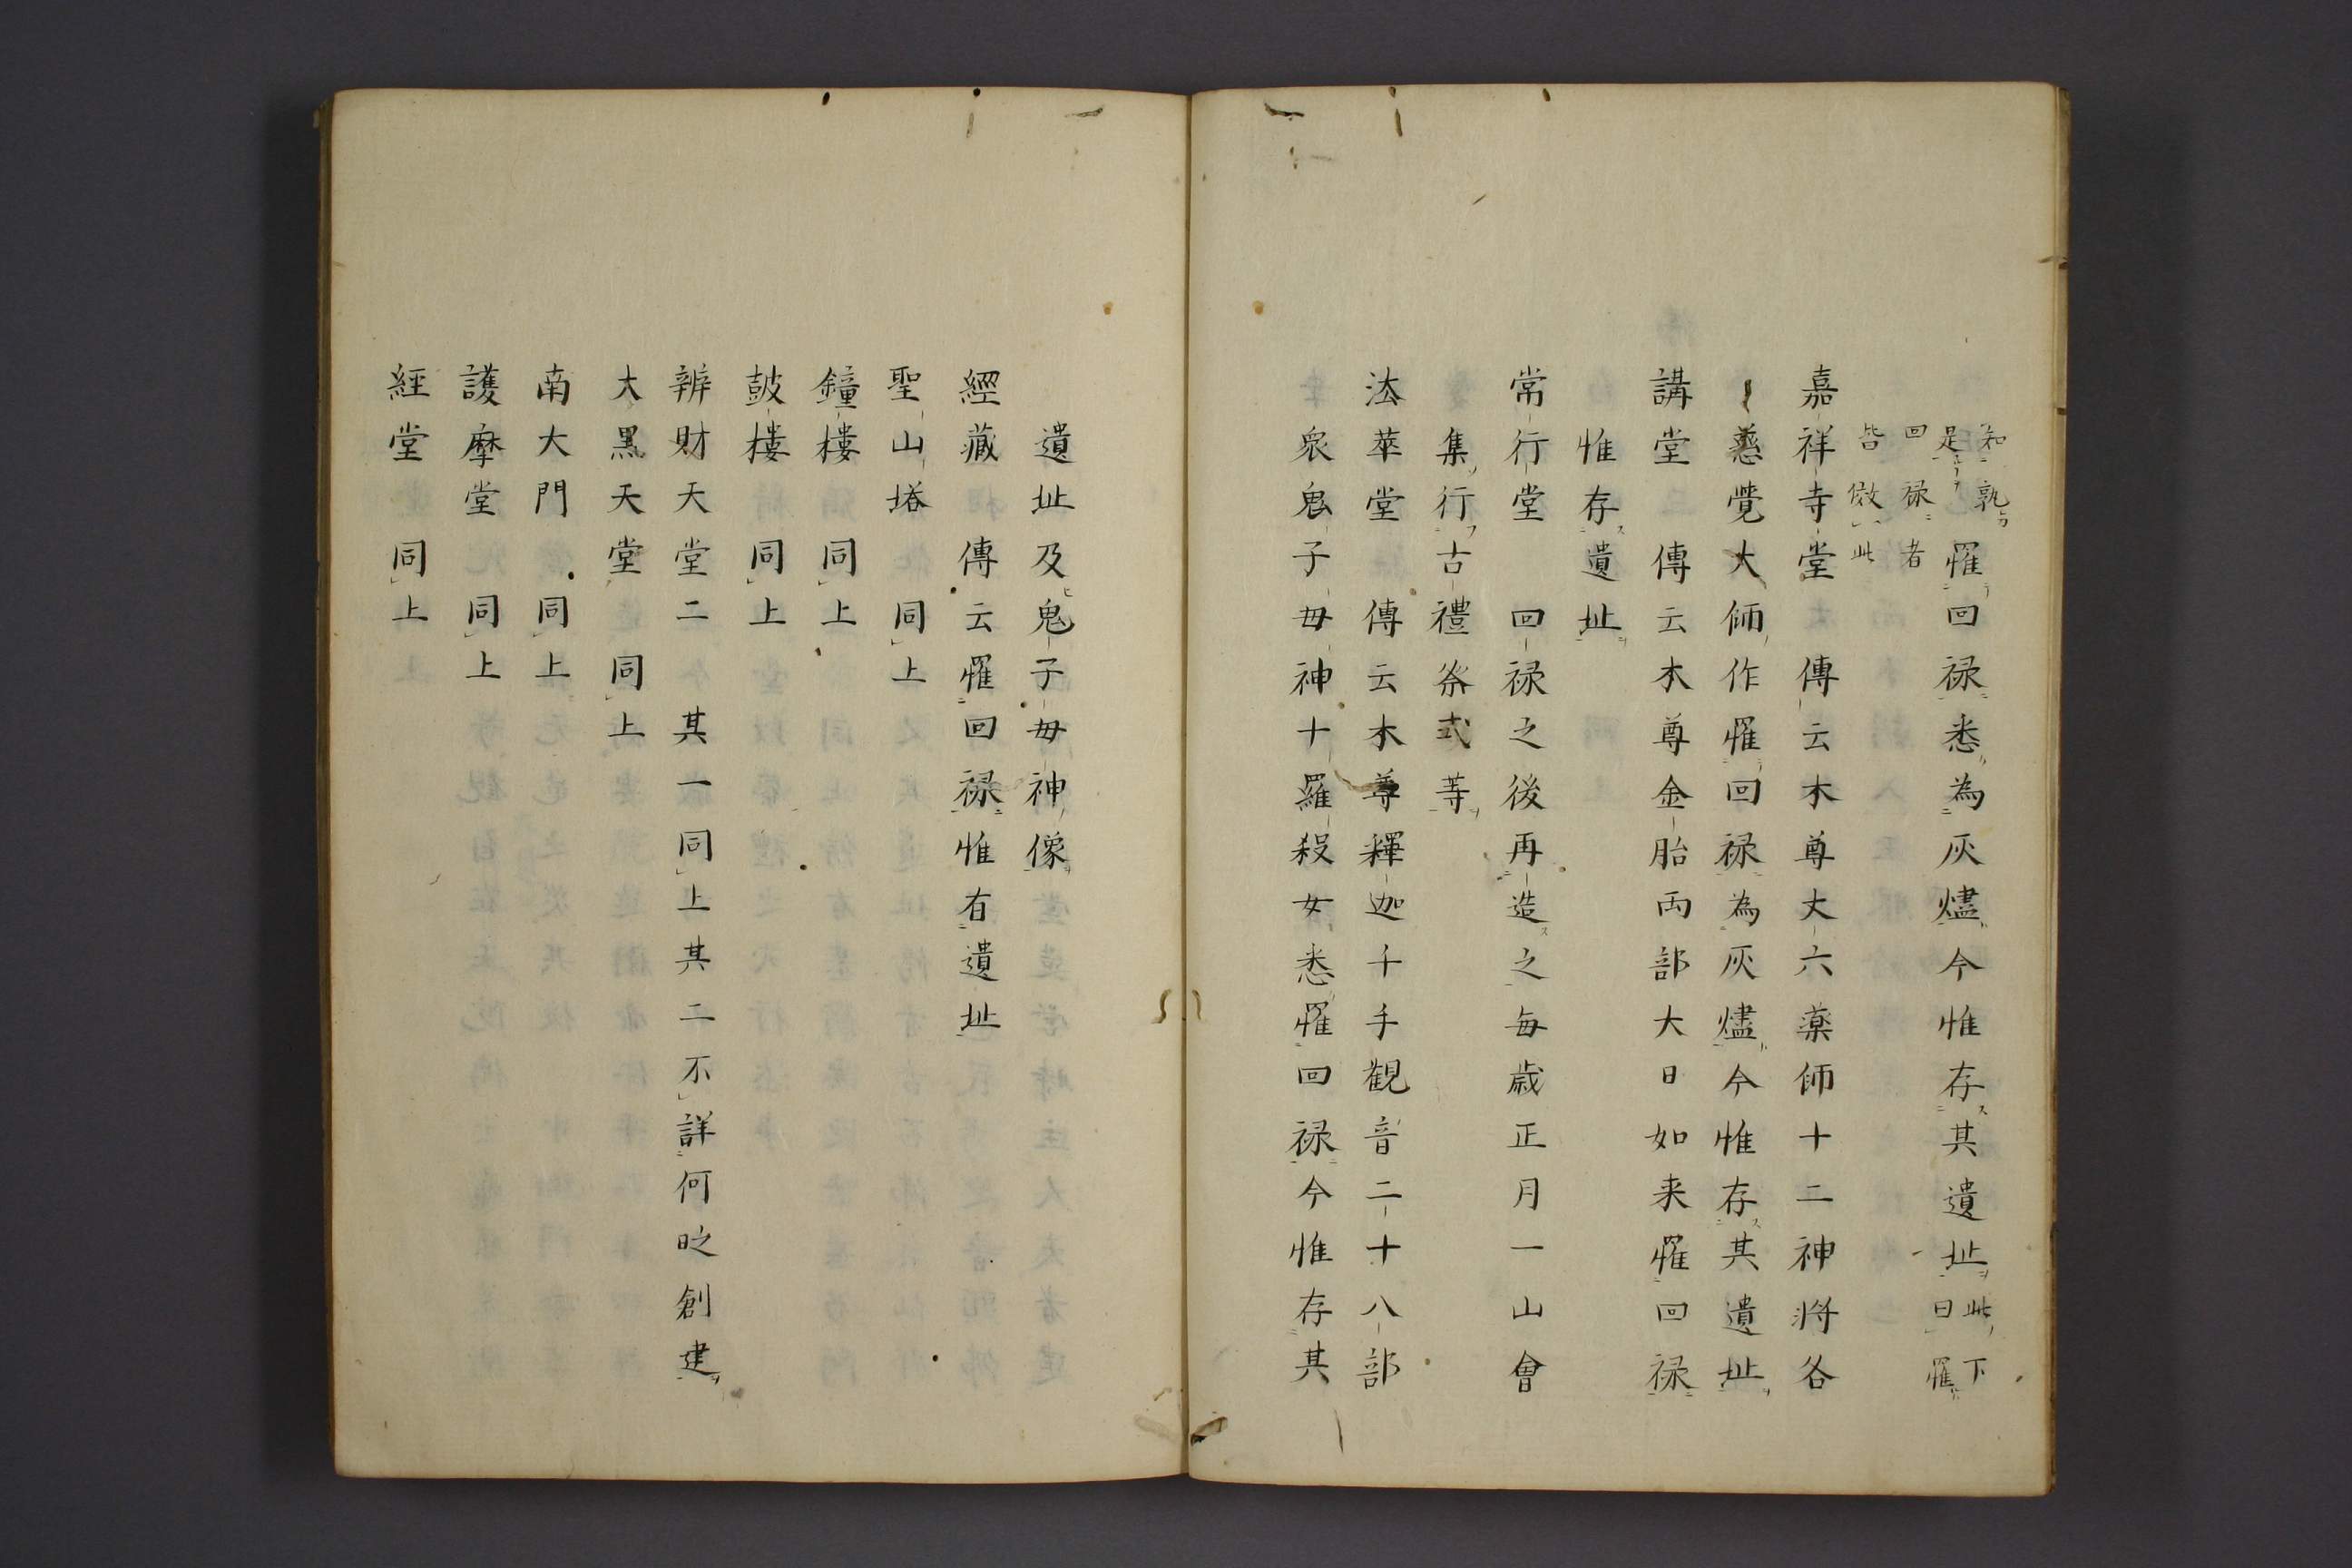 知孰
是
罹回禄悉為灰燼今惟存其遺址
此下
曰罹
回禄者
皆傚此
嘉祥寺堂 傳云木尊丈六薬師十二神将各
慈覺大師作罹回禄為灰燼今惟存其遺址
講堂 傳云木尊金胎両部大日如来罹回禄
惟存遺址
常行堂 回禄之後再造之毎歳正月一山會
集行古禮祭式等
法華堂 傳云木尊釋迦千手観音二十八部
衆鬼子毋神十羅殺女悉罹回禄今惟存其
遺址及鬼子毋神像
經藏 傳云罹回禄惟有遺址
聖山塔 同上
鐘樓 同上
皷樓 同上
辨財天堂二 其一同上其二不詳何時之創建
大黒天堂 同上
南大門 同上
護摩堂 同上
経堂 同上